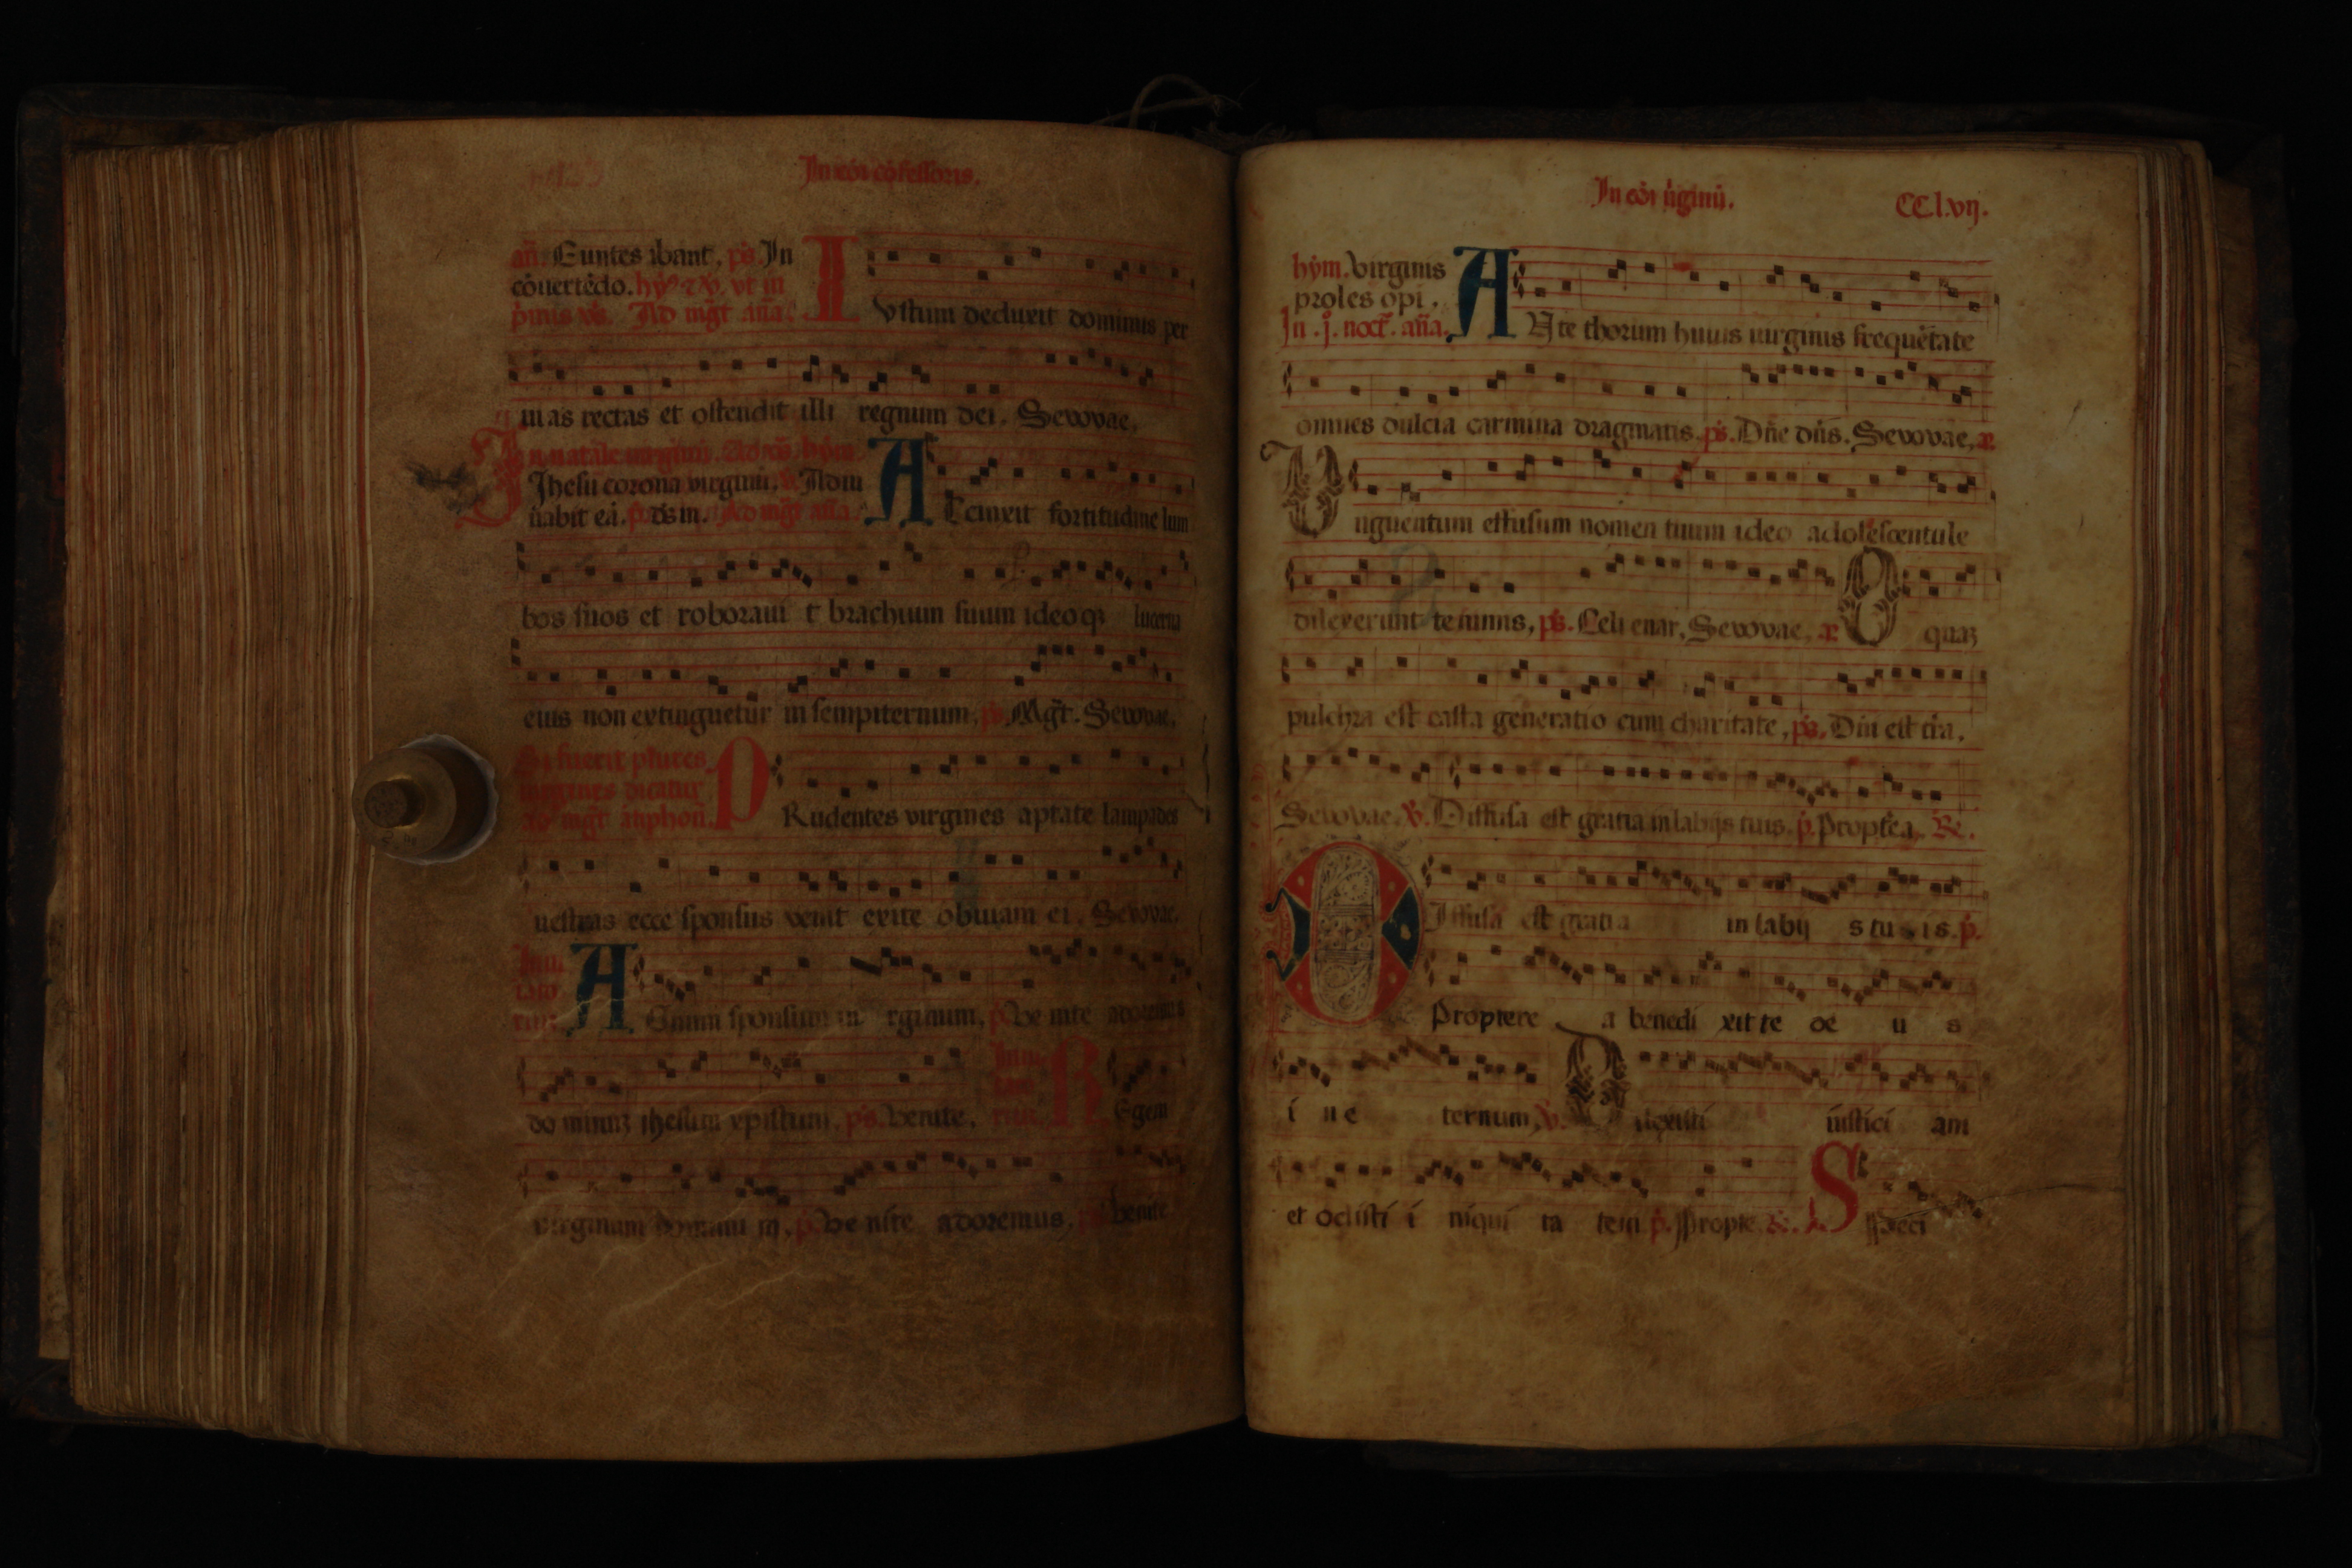 In cōi cōfessoris.
añ. Euntes ibant. ps. In
cōuertēdo. hȳ⁹ ⁊ ℣. vt in
pīmis vs̄. Ad mgt̄ aña. I
Vstum deduxit dominus per
uias rectas et ostendit illi regnum dei. Seuouae.
In natale uirginū. Ad vs̄. hȳm.
Jhesu corona virginū. ℣. Adiu
uabit eā. p. ds in. Ad mgt̄ aña. A
Ccinxit fortitudine lum
bos suos et roborauit brachium suum ideoqꝫ lucerna
eius non extinguetur in sempiternum. ps. Mgt̄. Seuouae.
Si fuerit plures
uirgines dicatur
ad mgt̄ anphoñ. P
Rudentes virgines aptate lampades
uestras ecce sponsus venit exite obuiam ei. Seuouae.
Inui
tato
riu. A
Gnum sponsum uirginum. p. Ve nite adoremus
do minuꝫ jhesum xpistum. ps. Venite. Inui
tato
riu. R
Egem
virginum dominum p. Ve nite adoremus. ps. Venite
In cōi ūginū. CC.l.vij.
hȳm. Virginis
proles opi.
In .j. noct̄. aña. A
Nte thorum huius uirginis frequētate
omnes dulcia carmina dragmatis. ps. Dñe dñs. Seuouae. æ
V nguentum effusum nomen tuum ideo adolescentule
dilexerunt te nimis. ps. Celi enar. Seuouae. æ O quaꝫ
pulchra est casta generatio cum charitate. ps. Dñi est tr̄a.
Seuouae. ℣. Diffusa est gratia in labijs tuis. p. Proptēa. Re.
D Iffusa est gratia in labij s tu is. p.
Proptere a benedi xit te de u s
i n e ternum. ℣. D ilexisti iustici am
et odisti i niqui ta tem p. Propte. Re. S Speci